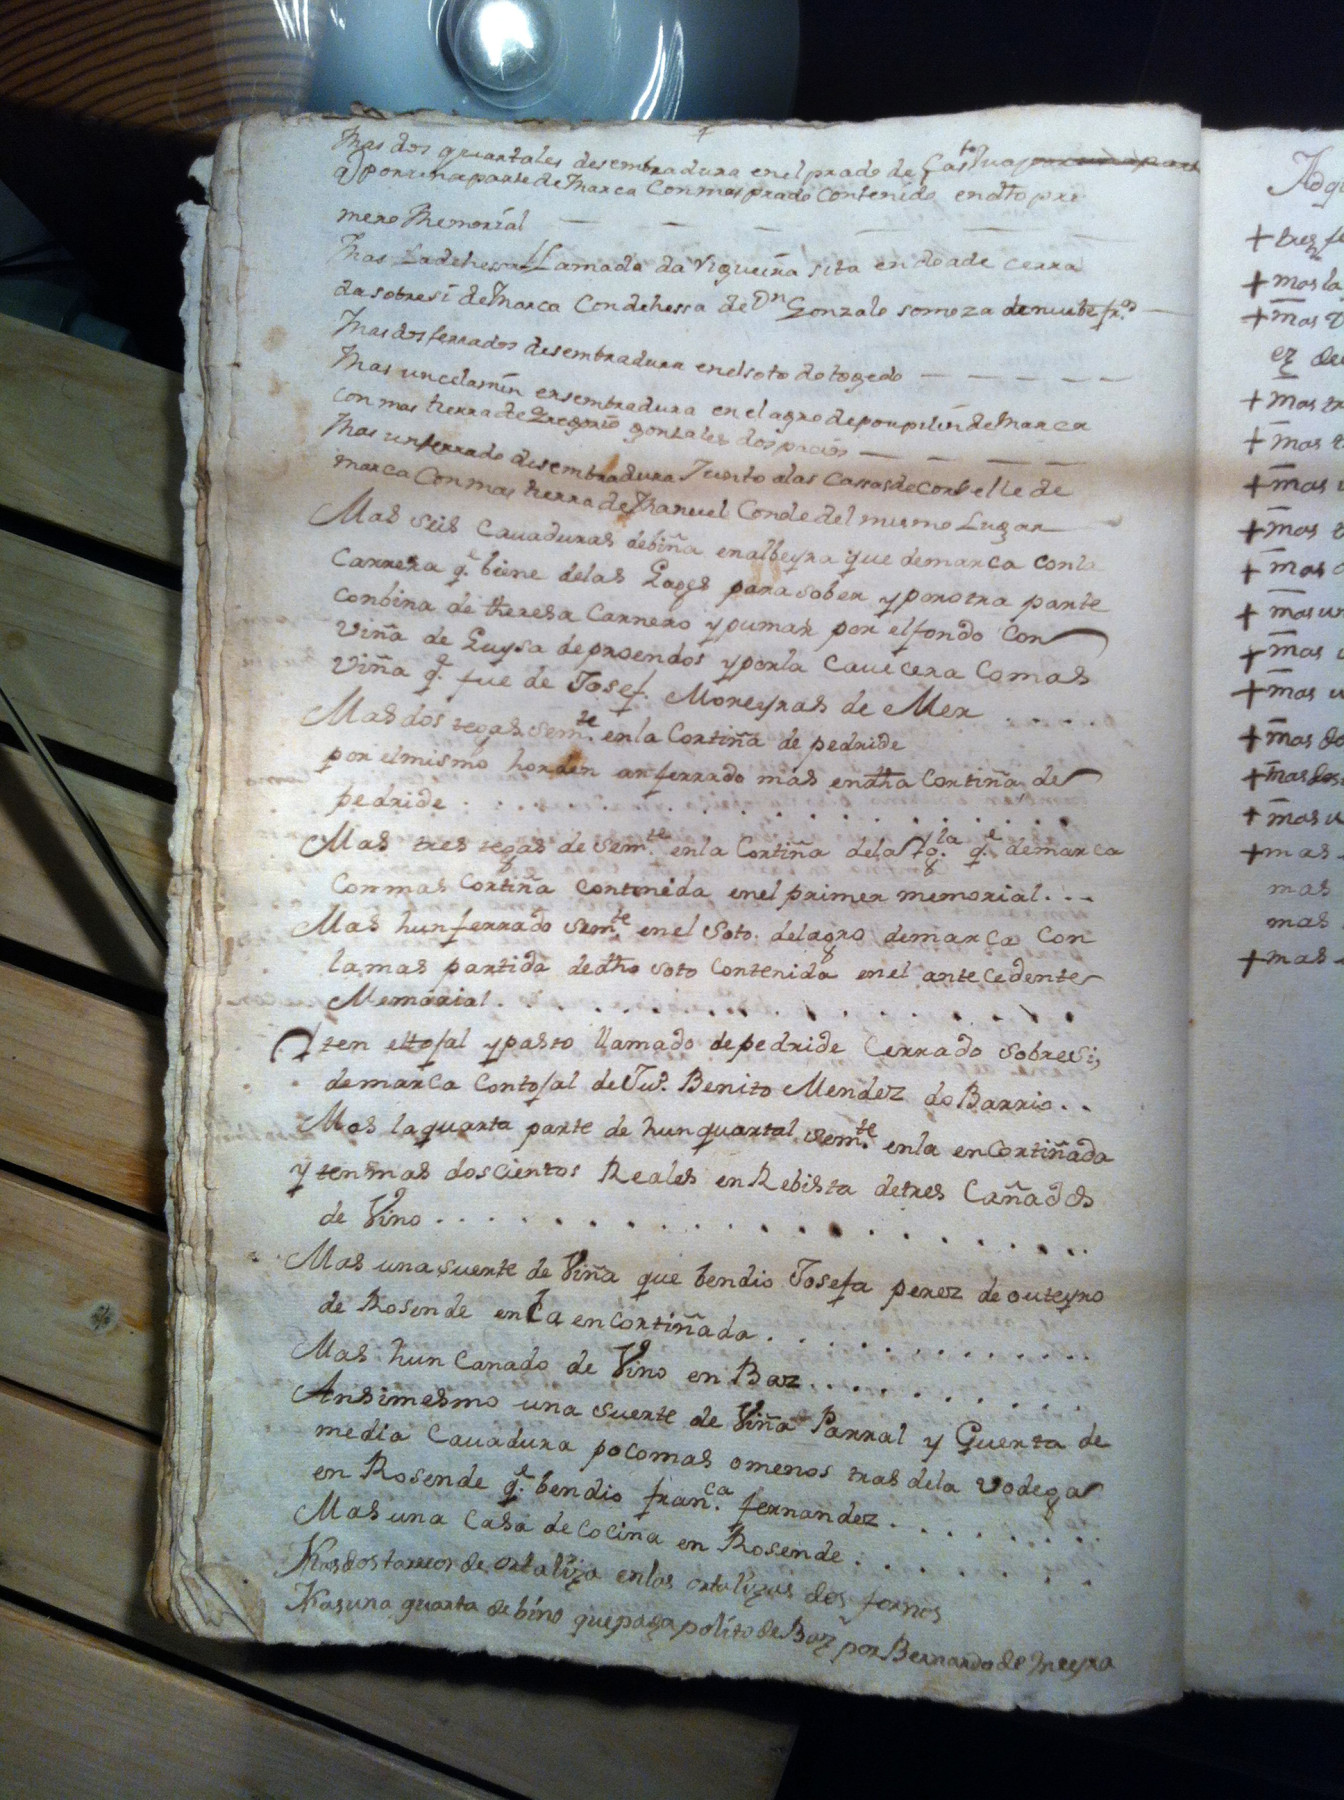 Mas dos quartales desembradura enel prado de
a) Por una parte demarca Con mas prado Contenido endho pri
mero Memorial
Mas Ladehessa LLamada da Vigueira sita en doade cerra
da sobresi demarca Con dehessa de Dn Gonzalo somoza
Mas dos ferrados desembradura enel soto do togedo
Mas un celamin ensembradura en el agro de poupilin demarca
con mas tierra de Gregorio gonzales dos
Mas un ferrado desembradura Junto alas Cassas de Corbelle de
marca Con mas tierra de Manuel Conde del mismo Lugar
Mas seis Cauaduras debiña enalbeyra que demarca conla
Carrera q.e biene delas Lages para sober y porotra parte
conbina de theresa Carnero y pumar por elfondo Con
viña de Luysa de proendos y porla Cauecera Comas
Viña q.e fue de Josef. Moreyras de Mer ....
Mas dos tegas sem.te enla Cortiña de pedride
por elmismo horden un ferrado mas endha Cortiña de
pedride ..........
Mas tres tegas de sem.te enla Cortiña dela q.e demarca
Con mas Cortiña contenida enel primer memorial...
Mas hun ferrado sem.te enel Soto. delagro demarca Con
la mas partida dedho soto Contenida enel antecedente
Memorial. ..........
Iten eltojal y pasto llamado depedride Cerrado Sobresi,
demarca contojal de Ju.o Benito Mendez do Barrio..
Mas la quarta parte de hun quartal sem.te enla encortiñada
y ten mas doscientos Reales en Rebista detres Cañados
de Vino ..........
Mas una suerte de Viña que bendio Josefa perez de outeyro
de Rosende en La encortiñada ..........
Mas hun Canado de Vino en Baz..........
Ansimesmo una suerte de Viña Parral y Guerta de
media Cauadura poco mas omenos tras dela vodega
en Rosende q.e bendio fran.ca fernandez ........
Mas una Casa de Cocina en Rosende ........
Mas dos tarreos de ortaliza enlas ortalizas dos fornos
Mas una quarta de bino que paga polito de Baz por Bernardo de Meyra
+
+ mas la
+ mas
ez
+ mas
+ mas
+ mas
+ mas
+ mas
+ mas
+ mas
+ mas
+ mas do
+ mas dos
+ mas
+ mas
mas
mas
+ mas